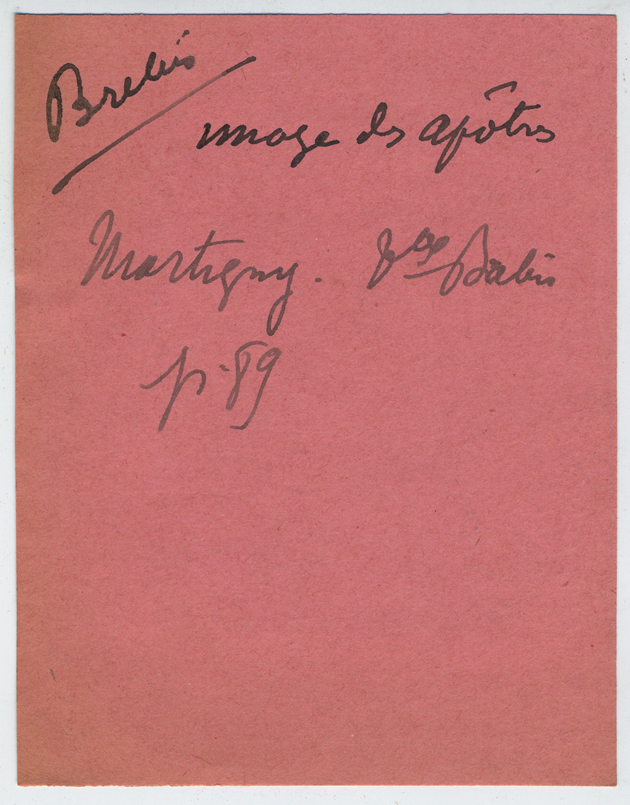 Brebis
image des apôtres
Martigny. Vce Brebis
p. 89